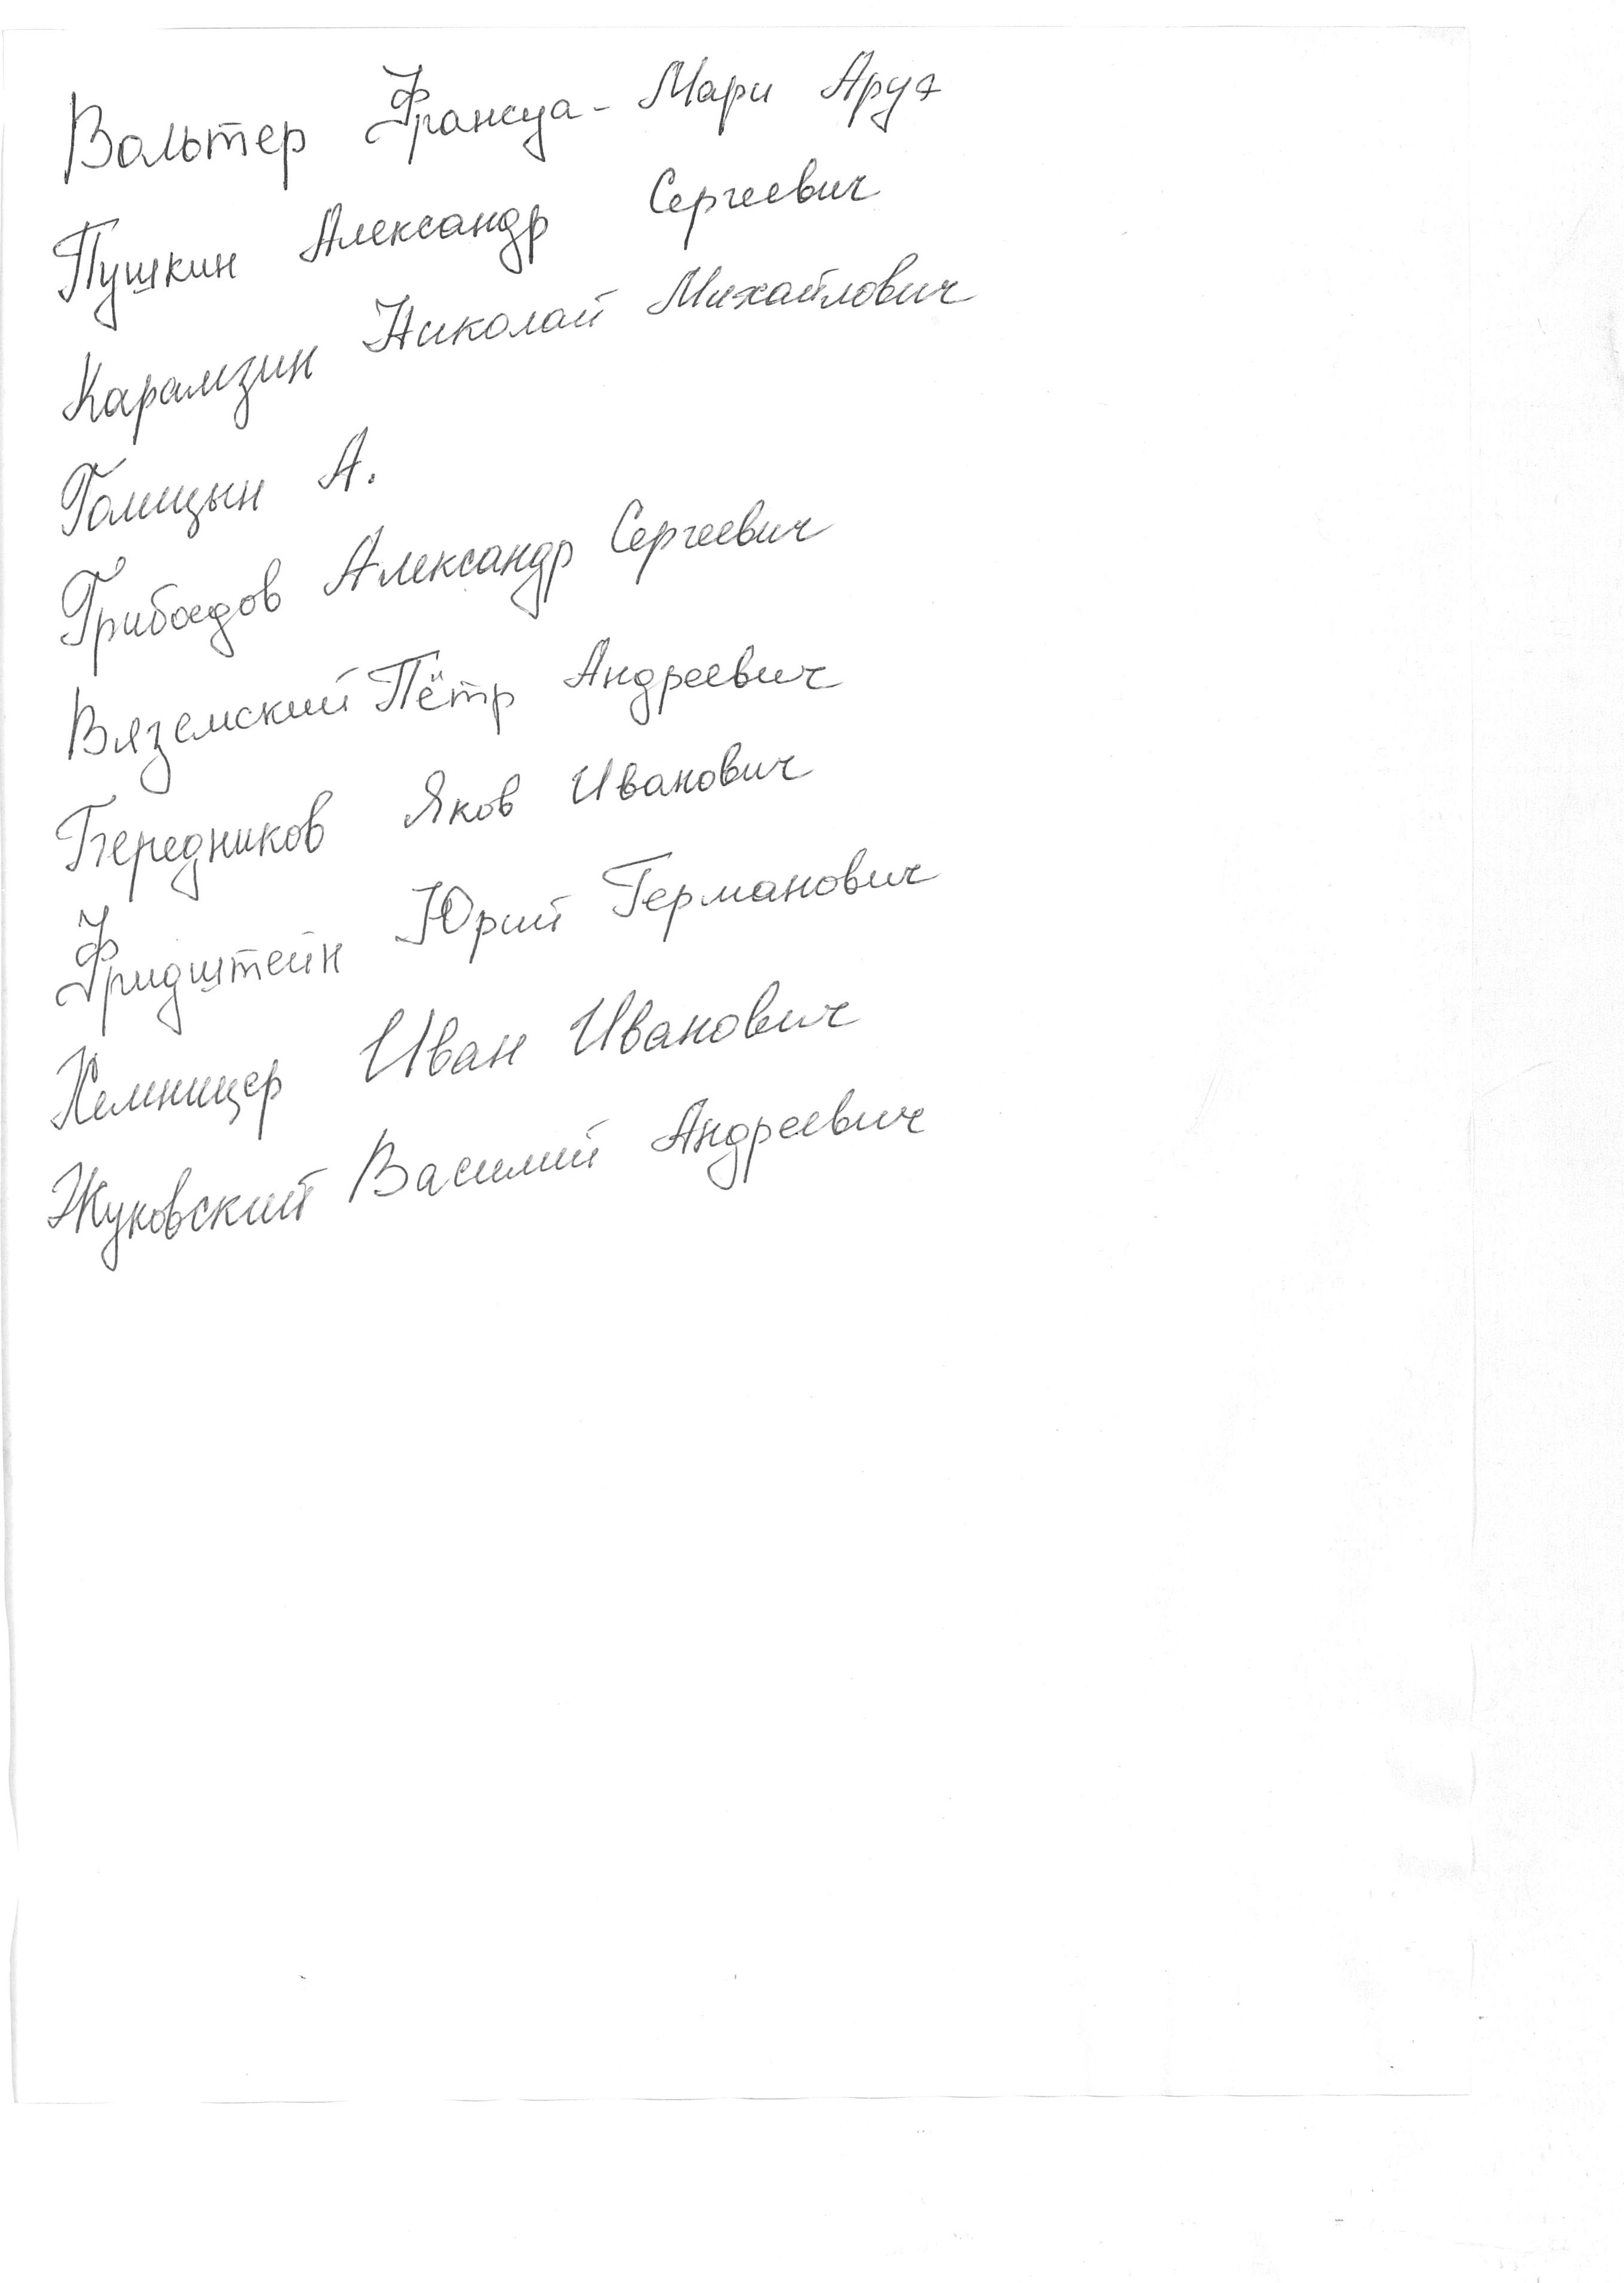 Вольтер Франсуа-Мари Аруэ
Пушкин Александр Сергеевич
Карамзин Николай Михайлович
Голицын А.
Грибоедов Александр Сергеевич
Вяземский Пётр Андреевич
Бередников Яков Иванович
Фридштейн Юрий Германович
Хемницер Иван Иванович
Жуковский Василий Андреевич